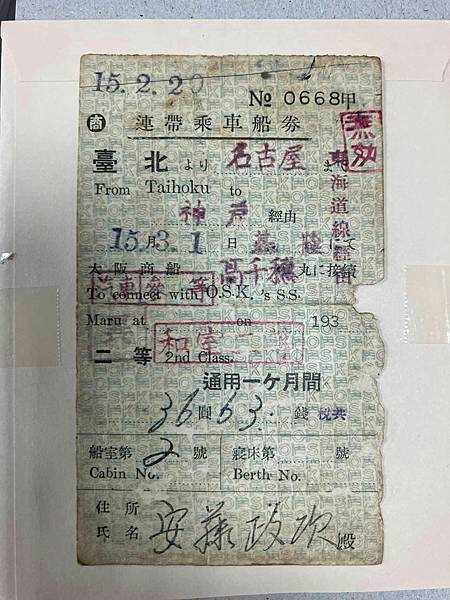 15.2.20
№ 0668甲
商 連帶乘車船券
無効
臺北より 名古屋 まで
From Taihoku to
東海道線經由
神戸 經由
15月3.1日 基隆にて
大阪商船 高千穗 丸に接續
To connect with O.S.K.'s S.S.
Maru at on 193
和室
二等 2nd Class.
通用一ケ月間
36圓63.錢 税共
船室第 2 號 寢床第 號
Cabin No. Berth No.
住所
氏名 安藤政次 殿